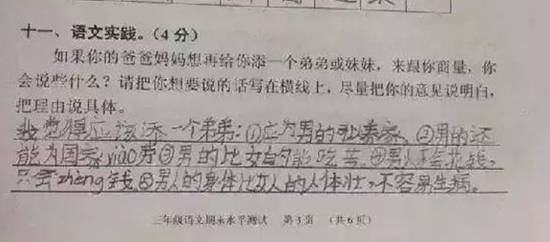 十一、语文实践。(4分)
如果你的爸爸妈妈想再给你添一个弟弟或妹妹，来跟你商量，你
会说些什么？请把你想要说的话写在横线上，尽量把你的意见说明白，
把理由说具体。
我觉得应该添一个弟弟：①应为男的能养家，②男的还
能为国家xiào劳③男的比女的能吃苦，④男人不会花钱，
只会zhèng钱，⑤男人的身体比女人的人体壮，不容易生病。
三年级语文期末水平测试 第3页 (共6页)